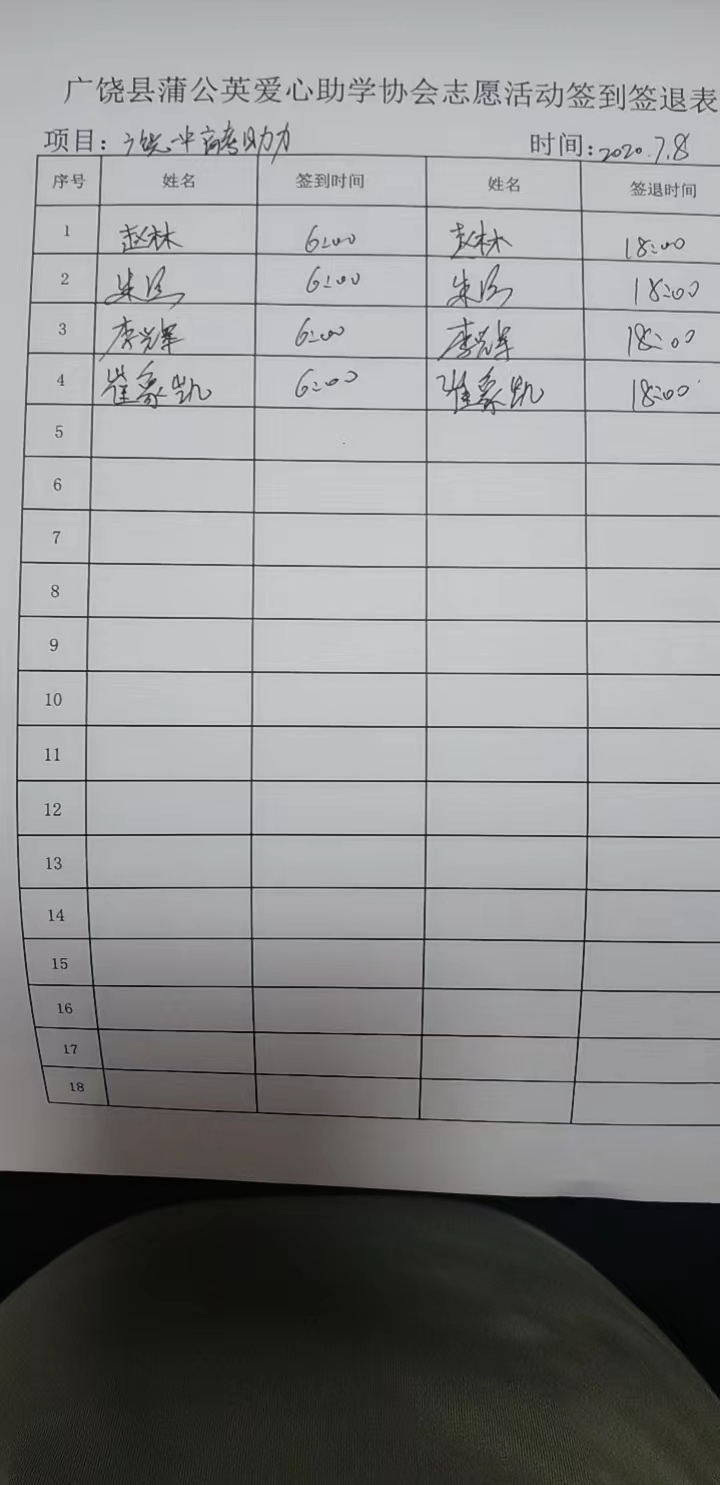 广饶县蒲公英爱心助学协会志愿活动签到签退表
项目：广饶一中高考助力 时间：2020.7.8
序号 姓名 签到时间 姓名 签退时间
1 赵林 6:00 赵林 18:00
2 6:00 18:00
3 李光军 6:00 李光军 18:00
4 崔象凯 6:00 崔象凯 18:00
5
6
7
8
9
10
11
12
13
14
15
16
17
18